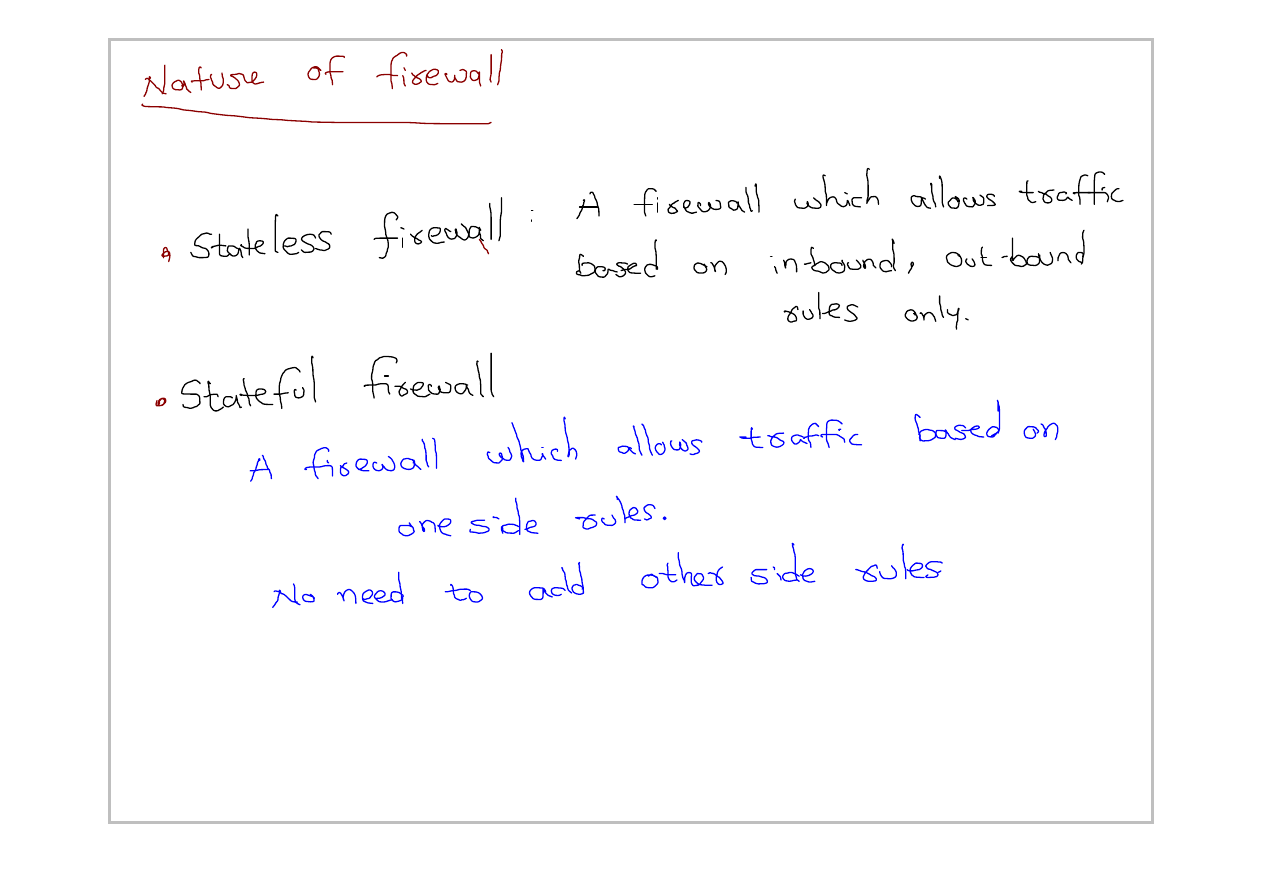 Nature of firewall
• Stateless firewall : A firewall which allows traffic
based on in-bound, out-bound
rules only.
• Stateful firewall
A firewall which allows traffic based on
one side rules.
No need to add other side rules